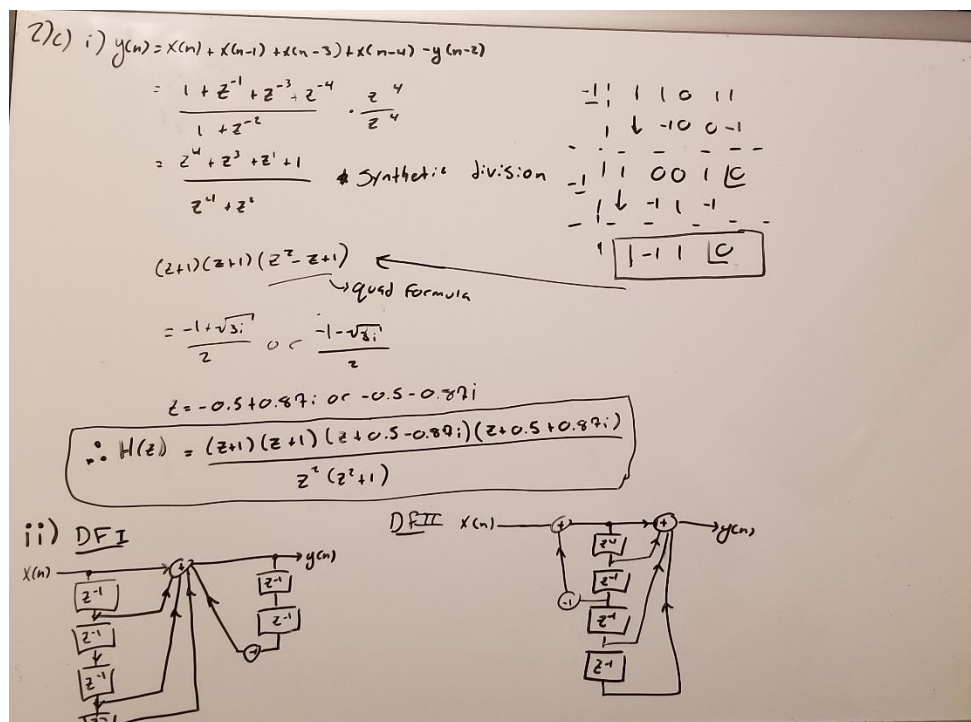 2)c) i) y(n) = x(n) + x(n-1) + x(n-3) + x(n-4) - y(n-2)
= 1 + z^-1 + z^-3 + z^-4 / 1 + z^-2 · z^4 / z^4
= z^4 + z^3 + z^1 + 1 / z^4 + z^2 * Synthetic division
-1 | 1 1 0 1 1
↓ -1 0 0 -1
-1 | 1 0 0 1 |0
↓ -1 1 -1
1 -1 1 |0
(z+1)(z+1)(z^2 - z + 1)
↳ quad formula
= -1+√3i / 2 or -1-√3i / 2
z = -0.5+0.87i or -0.5-0.87i
∴ H(z) = (z+1)(z+1)(z+0.5-0.87i)(z+0.5+0.87i) / z^2(z^2+1)
ii) DFI
x(n) + y(n)
z^-1 z^-1
z^-1 z^-1
z^-1 -
DFII x(n) + + y(n)
z^-1
z^-1
-1 z^-1
z^-1